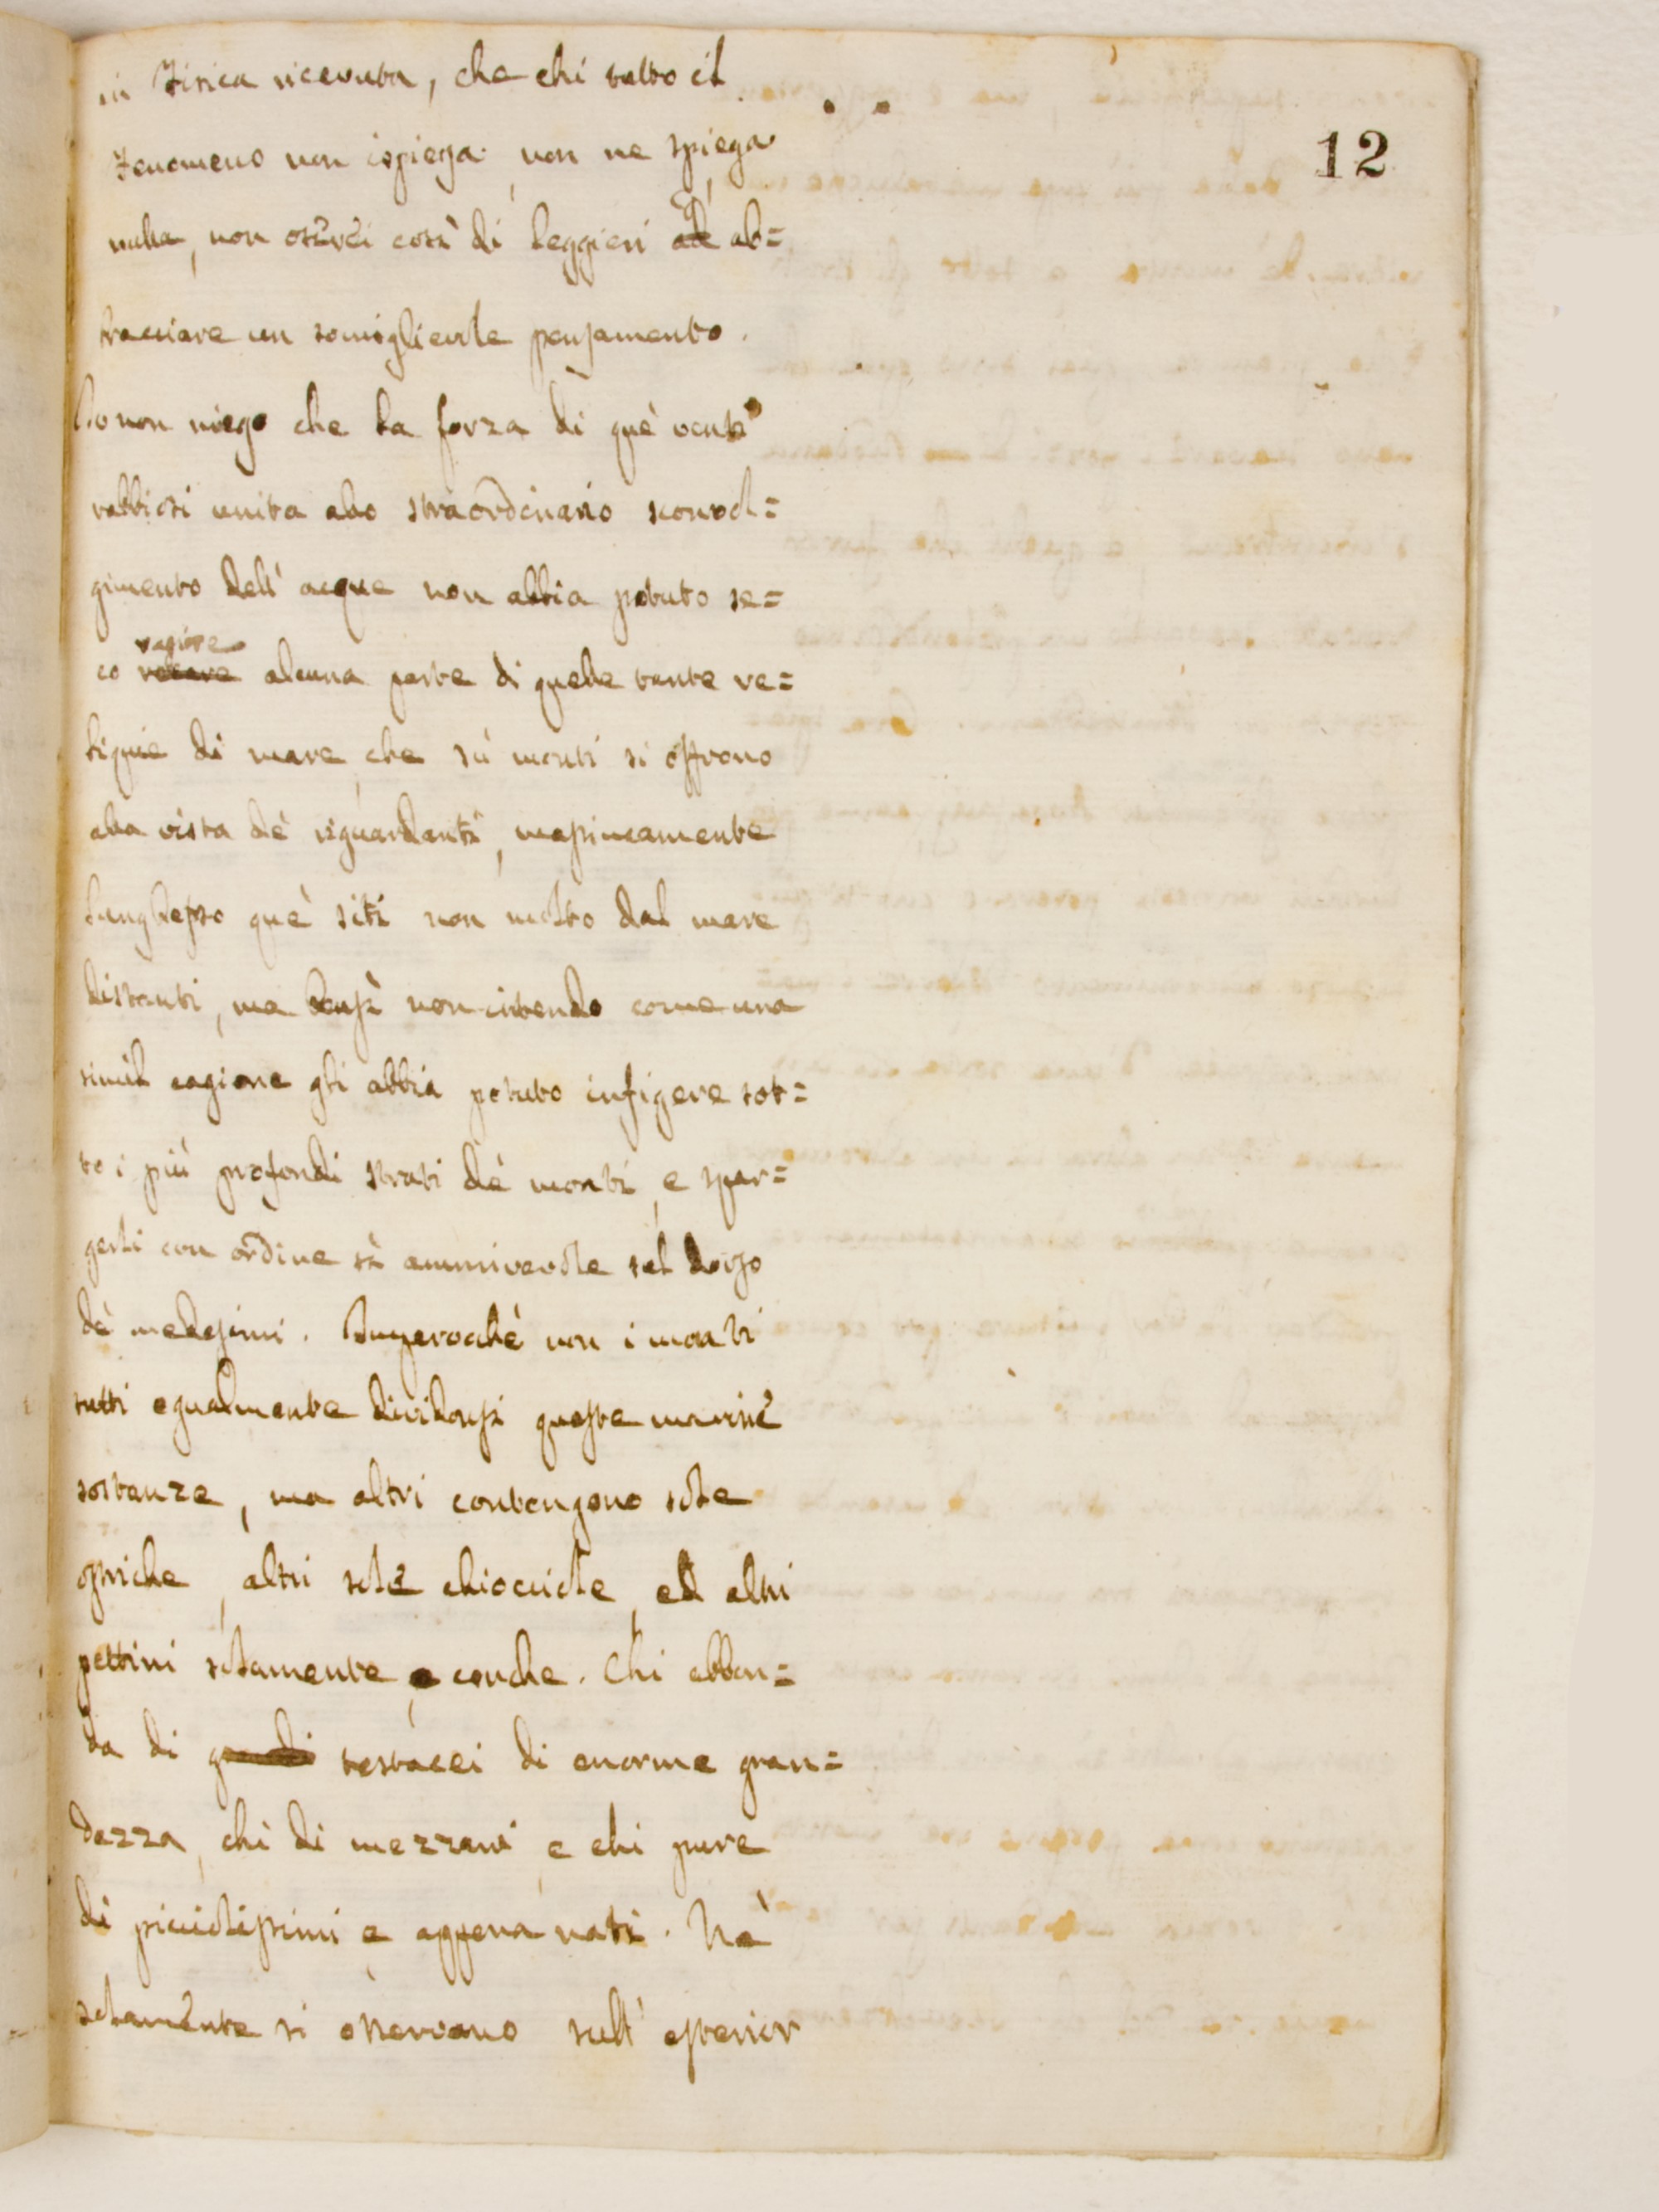 12
in Fisica ricevuta, che chi tutto il
Fenomeno non ispiega, non ne spiega
nulla, non oserei così di leggieri ad ab=
bracciare un somigliente pensamento.
Io non niego che la forza di què venti
rabbiosi unita allo straordinario sconvol=
gimento dell' acque non abbia potuto se=
co rapire alcuna parte di quelle tante re=
liquie di mare, che sù monti si offrono
alla vista dè riguardanti, massimamente
lunghesso què siti non molto dal mare
distanti, ma bensì non intendo come una
simil cagione gli abbia potuto infigere sot=
to i più profondi strati dè monti, e spar=
gerli con ordine sì ammirevole sul dorso
dè medesimi. Imperocchè non i monti
tutti egualmente dividonsi queste marine
sostanze, ma altri contengono sole
ostriche, altri sole chiocciole, ed altri
pettini solamente, e conche. Chi abbon=
da di grandi testacei di enorme gran=
dezza, chi di mezzani, e chi pure
di picciolissimi e appena nati. Nè
solamente si osservano sull' esterior